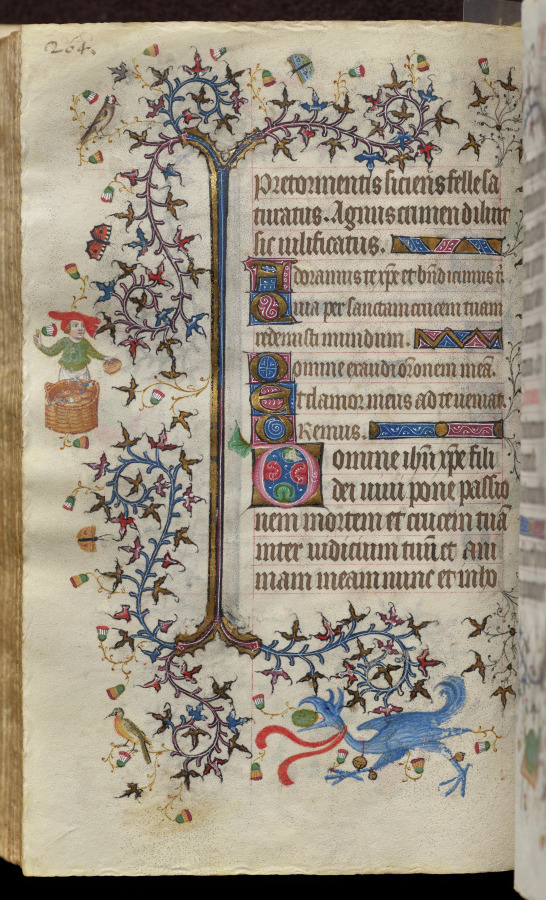 264.
Pretormentis siciens felle sa
turatus. Agnus crimen diluit
sic uilificatus.
Adoramus te xpe et bn̄dicimus t̄
Quia per sanctam crucem tuam
redemisti mundum.
Domine exaudi or̄onem meā.
Et clamor meus ad te ueniat.
Oremus.
Domine ihū xpe fili
dei uiui pone passio
nem mortem et crucem tuā
inter iudicium tuū et ani
mam meam nunc et in ho